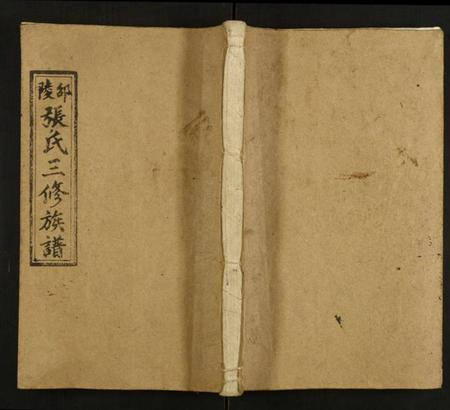 邵陵
張氏三修族譜